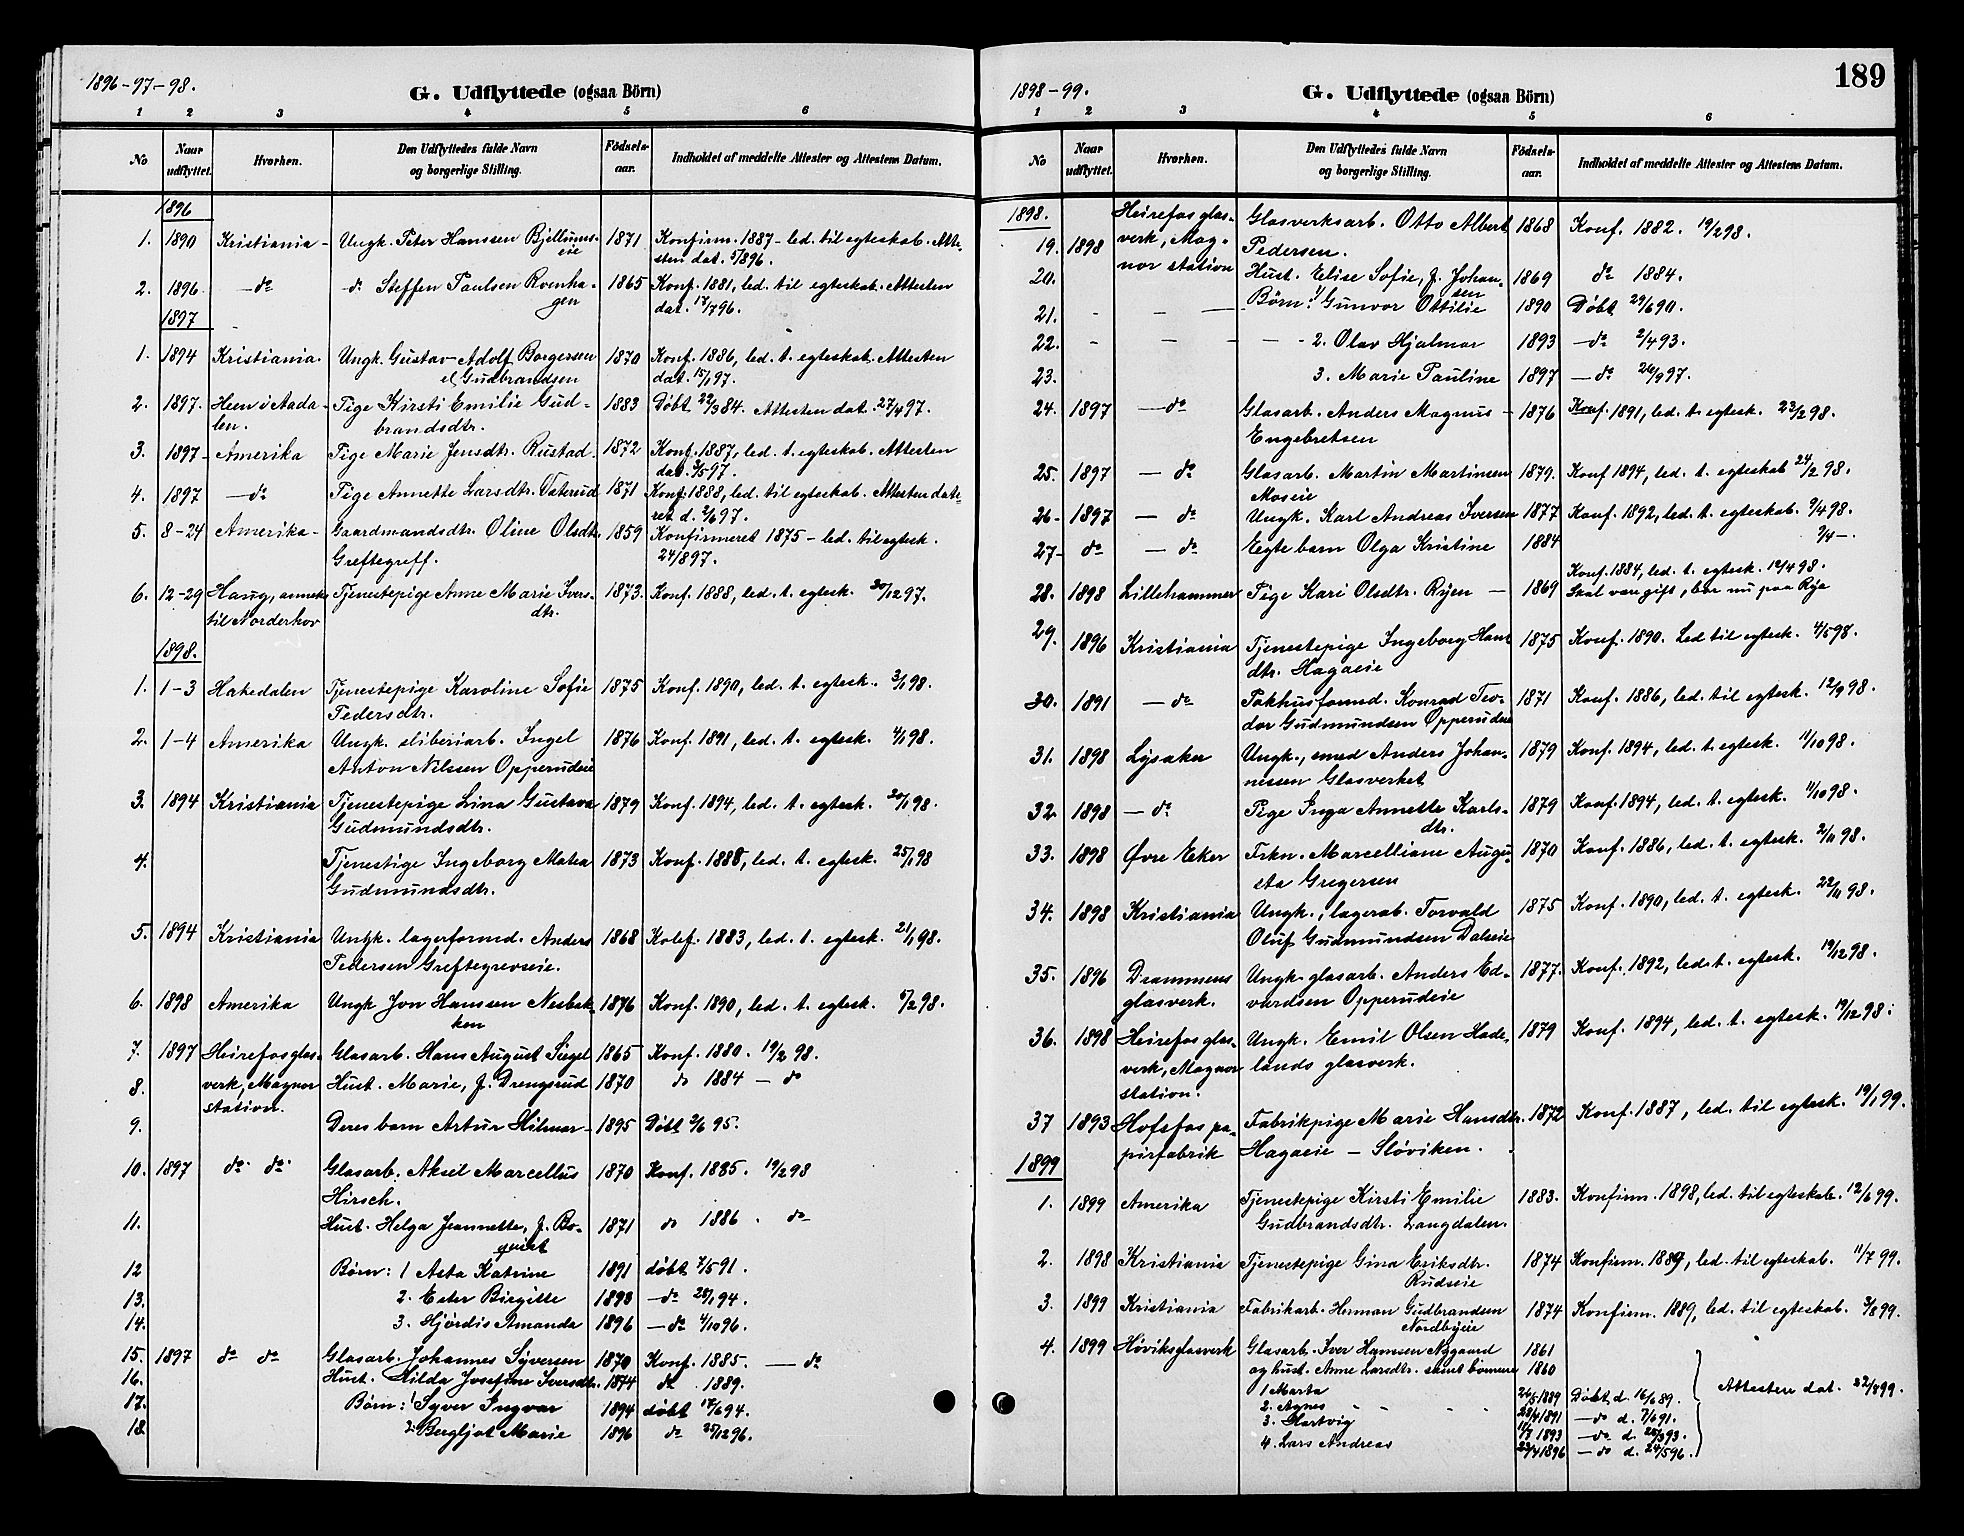 1896-97-98.
G. Udflyttede (ogsaa Börn)
1 2 3 4 5 6
No
Naar udflyttet.
Hvorhen.
Den Udflyttedes fulde Navn og borgerlige Stilling.
Födsels-aar.
Indholdet af meddelte Attester og Attestens Datum.
1896
1. 1890 Kristiania - Ungk. Peter Hanssen Bjellums- 1871 Konfirm. 1887 - led. til egteskab. Atte-
eie sten dat. 5/8 96.
2. 1896 - do - do Steffen Paulsen Rvenha- 1865 Konf. 1881, led. til egteskab. Attesten
gen dat. 17/7 96.
1897
1. 1894 Kristiania. Ungk. Gustav Adolf Borgersen 1870 Konf. 1886, led. t. egteskab. Attesten
el Gudbrandsen dat. 15/1 97.
2. 1897. Heen i Aada- Pige Kirsti Emilie Gud- 1883 Döbt 22/3 84. Attesten dat. 27/4 97.
len. brandsdtr.
3. 1897 - Amerika Pige Marie Jensdtr. Rustad. 1872 Konf. 1887, led. t. egteskab. Attesten
dat. 3/5 97.
4. 1897 - do Pige Annette Larsdtr. Taterud 1871 Konf. 1888, led. til egteskab. Attesten date-
ret d. 2/6 97.
5. 8-24 Amerika - Gaardmandsdtr. Oline Olsdtr. 1859 Konfirmeret 1875 - led. til egtesk.
Greftegreff. 24/8 97.
6. 12-29 Haug, anneks Tjenestepige Anne Marie Ivers- 1873. Konf. 1888, led. t. egtesk. 30/12 97.
til Norderhov dtr.
1898.
1. 1-3 Hakedalen Tjenestepige Karoline Sofie 1875 Konf. 1890, led. t. egtesk. 3/1 98.
Pedersdtr.
2. 1-4 Amerika Ungk. sliberiarb. Ingel 1876 Konf. 1891, led. t. egtesk. 4/1 98.
Anton Nilssen Opperudeie
3. 1894 Kristiania Tjenestepige Lina Gustava 1879 Konf. 1894, led. t. egtesk. 20/1 98.
Gudmundsdtr.
4. Tjenestige Ingeborg Matea 1873 Konf. 1888, led. t. egtesk. 25/1 98
Gudmundsdtr.
5. 1894 Kristiania Ungk. lagerformd. Anders 1868 Kolef. 1883, led. t. egtesk. 21/1 98.
Pedersen Greftegrevseie.
6. 1898 Amerika Ungk Jon Hanssen Nesbak- 1876 Konf. 1890, led. t. egtesk. 5/2 98.
ken
7. 1897 Heirefosglas- Glasarb. Hans August Siegel 1865 Konf. 1880. 19/2 98.
8. verk, Magnor Hust. Marie, f. Drengsrud 1870 do 1884 - do
station.
9. Deres barn Artur Hilmar - 1895 Döbt 3/6 95.
10. 1897 do do Glasarb. Aksel Marcellus 1870 Konf. 1885. 19/2 98
Hirsch.
11. Hust. Helga Jeannette, f. Bo- 1871 do 1886. do
quist
12 Börn: 1 Asta Katrine 1891 döbt 7/5 91.
13. 2. Ester Birgitte 1893 - do 28/1 94.
14. 3. Hjördis Amanda 1896 - do 4/10 96.
15. 1897 do do Glasarb. Johannes Syversen 1870 Konf. 1885. - do
16. Hust. Hilda Josefine Iversdtr. 1874 do 1889.
17. Börn: 1 Syver Ingvar 1894 döbt 17/6 94.
18 2 Bergljot Marie 1896 do 25/12 96.
1898-99.
G. Udflyttede (ogsaa Börn)
189
1 2 3 4 5 6
No
Naar udflyttet.
Hvorhen.
Den Udflyttedes fulde Navn og borgerlige Stilling.
Födsels-aar.
Indholdet af meddelte Attester og Attestens Datum.
1898. Heirefos glas-
19. 1898 verk, Mag- Glasverksarb. Otto Albert 1868 Konf. 1882. 19/2 98.
nor station Pedersen.
20. Hust. Elise Sofie, f. Johan- 1869 do 1884.
sen
21. - - - Börn: 1/ Gunvor Ottilie 1890 Döbt 29/6 90.
22. - - - - 2. Olav Hjalmar 1893 - do 2/4 93.
23. 3. Marie Pauline 1897 - do 26/9 97.
24. 1897 - do Glasarb. Anders Magnus - 1876 Konf. 1891, led. t. egtesk. 23/2 98.
Engebretsen
25. 1897 - do Glasarb. Martin Martinsen 1879. Konf 1894, led. t. egteskab 24/2 98.
Moseie
26 - 1897 - do Ungk. Karl Andreas Iversen 1877 Konf. 1892, led. t. egteskab. 9/4 98.
27 - do - do Egte barn Olga Kristine 1884 2/4 -.
28. 1898 Lillehammer Pige Kari Olsdtr. Ryen - 1869 Konf. 1884, led. t. egtesk. 12/4 98.
Skal van gift, bor nu paa Rye
29. 1896 Kristiania Tjenestepige Ingeborg Hans 1875 Konf. 1890. Led til egtesk. 4/5 98.
dtr. Hagaeie
30. 1891 - do Pakhusformd. Konrad Teo- 1871 Konf. 1886, led. til egtesk. 12/9 98.
dor Gudmundsen Opperudeie
31. 1898 Lysaker Ungk., smed Anders Johan- 1879 Konf. 1894, led. t. egtesk. 11/10 98.
nessen Glasverket
32 1898 - do Pige Inga Annette Karls- 1879 Konf. 1894, led. t. egtesk. 11/10 98.
dtr.
33. 1898 Övre Eker Frkn. Marcelliane Augu- 1870 Konf. 1886, led. t. egtesk. 2/11 98.
sta Gregersen
34. 1898 Kristiania Ungk., lagerab. Torvald 1875 Konf. 1890, led. t. egtesk. 22/11 98.
Oluf Gudmundsen Dalseie
35. 1896 Drammens Ungk. glasarb. Anders Ed- 1877. Konf. 1892, led. t. egtesk. 19/12 98.
glasverk. vardsen Opperudeie
36. 1898 Heirefos glas- Ungk. Emil Olsen Hade- 1879 Konf. 1894, led. t. egtesk. 19/12 98.
verk, Magnor lands glasverk.
station.
37 1893 Hofsfos pa- Fabrikpige Marie Hansdtr. 1872 Konf. 1887, led. til egtesk. 19/1 99.
pirfabrik Hagaeie - Slöviken.
1899
1. 1899 Amerika Tjenestepige Kirsti Emilie 1883. Konfirm. 1898, led. til egteskab. 12/6 99.
Gudbrandsdtr. Langdalen.
2. 1898 Kristiania Tjenestepige Gina Eriksdtr. 1874 Konfirm. 1889, led. til egteskab. 11/7 99.
Rudseie
3. 1899 Kristiania Fabrikarb. Herman Gudbrandsen 1874 Konfirm. 1889, led. til egteskab. 3/8 99.
Nordbyeie
4. 1899 Höviksglasverk Glasarb. Iver Hansen Nygaard 1861
og hust. Anne Larsdtr. samt börnene 1860
1 Marta 26/5 1889 Döbt d. 16/6 89. Attesten dat. 22/4 99.
2. Agnes 28/4 1891 - do d. 7/6 91.
3. Hartvig 11/7 1893 - do d. 28/3 93.
4. Lars Andreas 23/4 1896 - do d. 24/5 96.